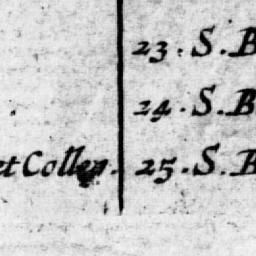 23. S. B
24. S. B
et Collen. 25. S. B